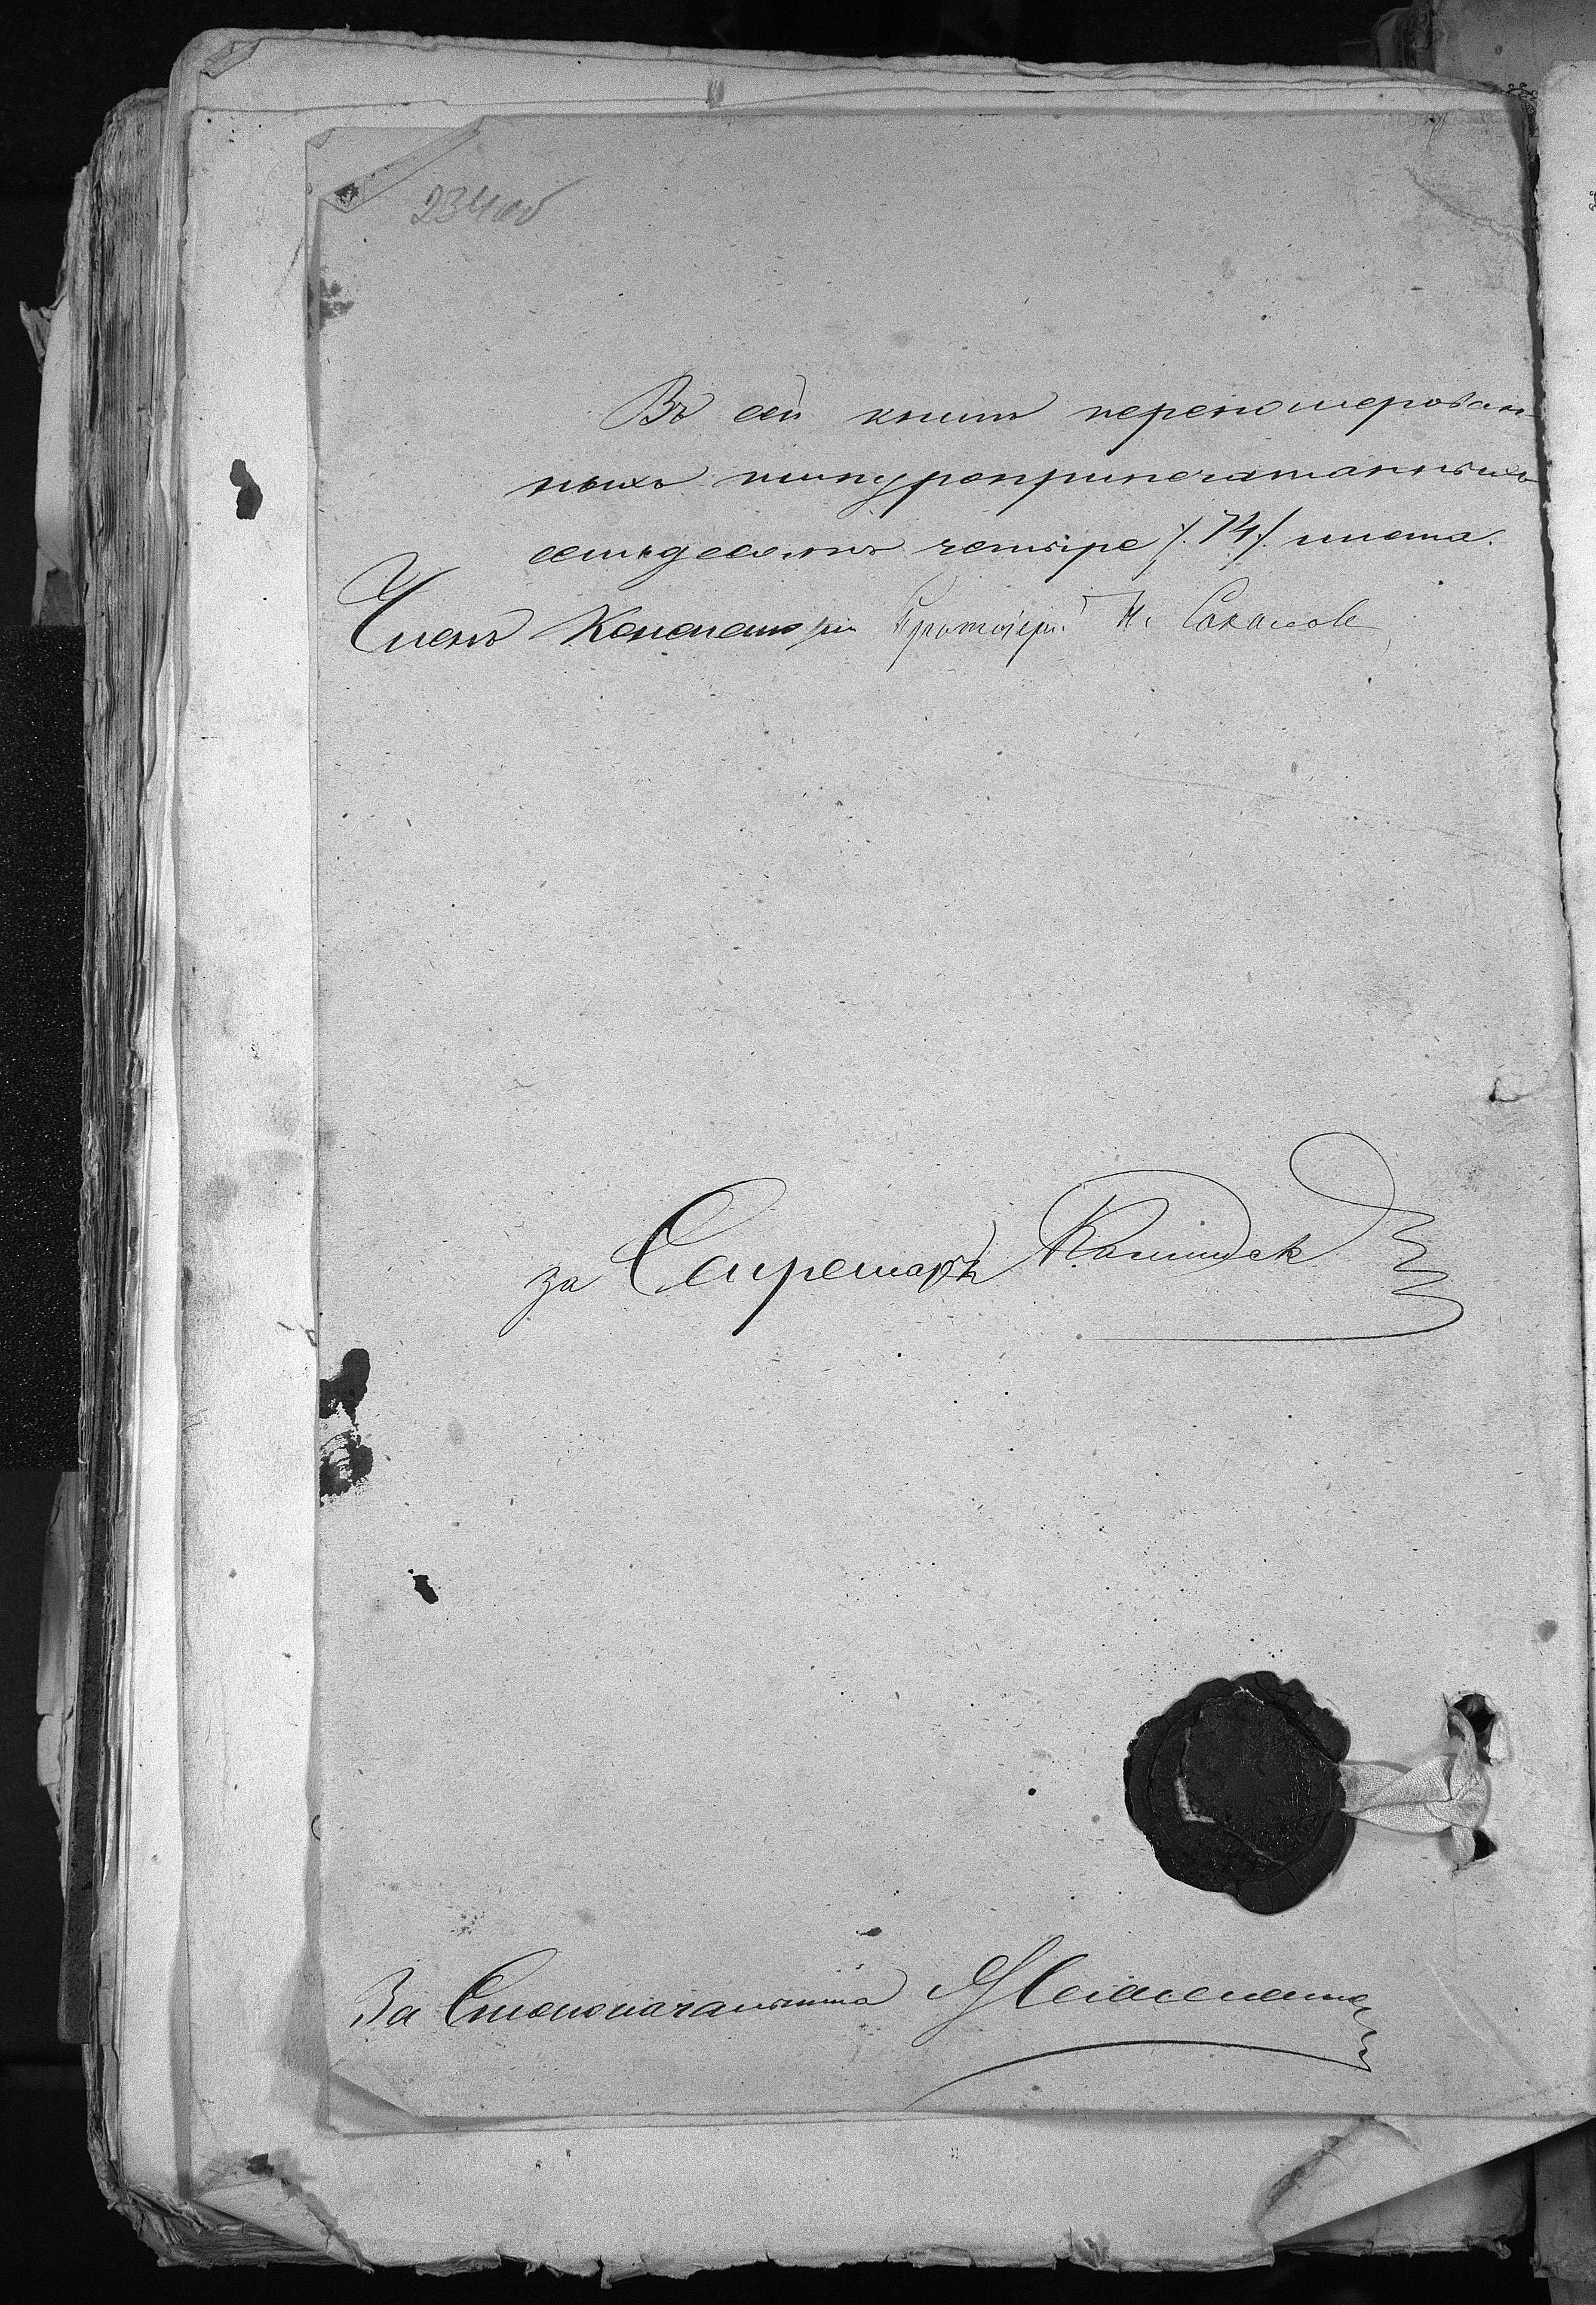 234 об
Въ сей книге перенумерован-
ныхъ шнуроприпечатанныхъ
семьдесятъ четыре /.74/. листа.
Членъ Консисторіи Протоіерей Н. Соколов
за Секретаря
За Столоначальника